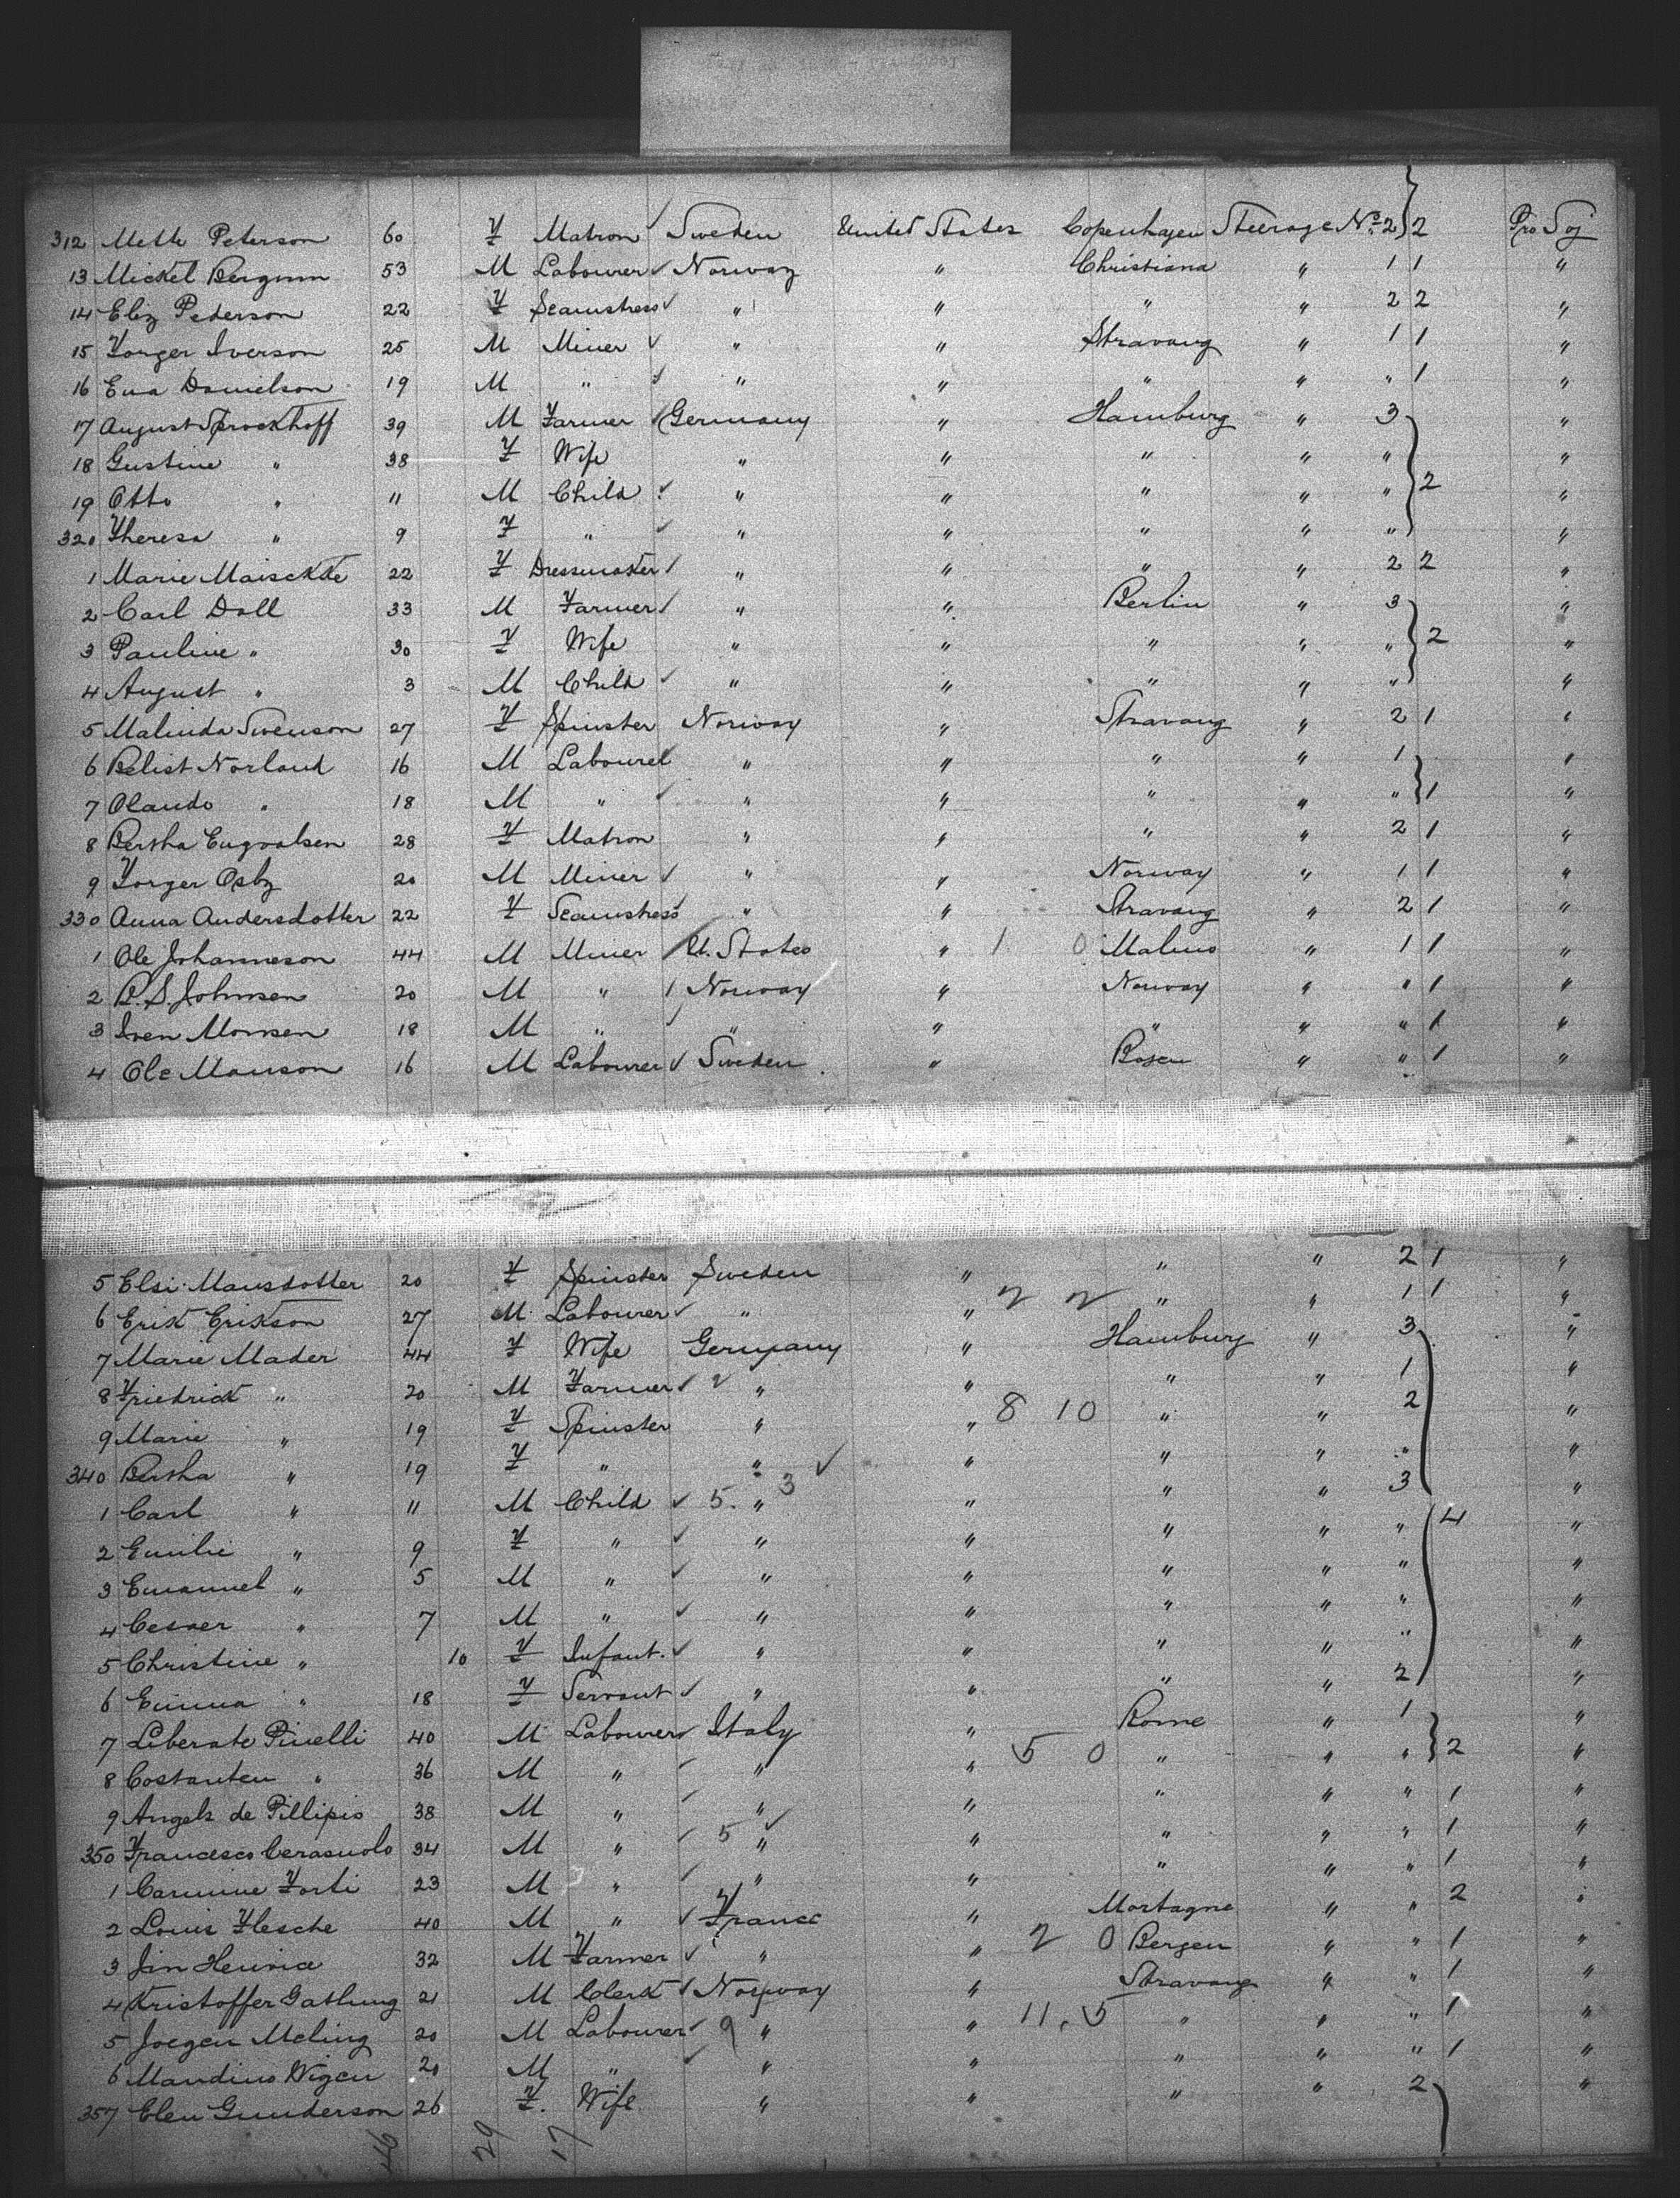 312 Mette Peterson 60 F Matron Sweden United States Copenhagen Steerage No. 2 2 Pro Soj
13 Mickel Bergum 53 M Labourer Norway " Christiana " 1 1 "
14 Eliz Pederson 22 F Seamstress " " " " 2 2 "
15 Torger Iverson 25 M Miner " " Stravang " 1 1 "
16 Danielson 19 M " " " " " " 1 "
17 August Sprockhoff 39 M Farmer Germany " Hamburg " 3 "
18 Gustine " 38 F Wife " " " " " "
19 Otto " 11 M Child " " " " " 2 "
320 Theresa " 9 F " " " " " " "
1 Marie Maisckke 22 F Dressmaker " " " " 2 2 "
2 Carl Doll 33 M Farmer " " Berlin " 3 "
3 Pauline " 30 F Wife " " " " " 2 "
4 August " 3 M Child " " " " " "
5 Malinda Swenson 27 F Spinster Norway " Stravang " 2 1 "
6 Norland 16 M Labourer " " " " 1 "
7 Olando " 18 M " " " " " " 1 "
8 Bertha Engvalsen 28 F Matron " " " " 2 1 "
9 Torger Osby 20 M Miner " " Norway " 1 1 "
330 Anna Andersdotter 22 F Seamstress " " Stravang " 2 1 "
1 Ole Johanneson 44 M Miner U. States " 1 0 Malmo " 1 1 "
2 P. S. Johnsen 20 M " Norway " Norway " " 1 "
3 Iven Monsen 18 M " " " " " " 1 "
4 Ole Manson 16 M Labourer Sweden " Bosen " " 1 "
5 Elsi Mansdotter 20 F Spinster Sweden " " " 2 1 "
6 Erik Erikson 27 M Labourer " " 2 2 " " 1 1 "
7 Marie Mader 44 F Wife Germany " Hamburg " 3 "
8 Friedrick " 20 M Farmer " " " " 1 "
9 Marie " 19 F Spinster " " 8 10 " " 2 "
340 Bertha " 19 F " " " " " " "
1 Carl " 11 M Child 5 " 3 " " " 3 "
2 Emilie " 9 F " " " " " " 4 "
3 Emanuel " 5 M " " " " " " "
4 Cesaer " 7 M " " " " " " "
5 Christine " 10 F Infant. " " " " " "
6 Emma " 18 F Servant " " " " 2 "
7 Liberate Pinelli 40 M Labourer Italy " Rome " 1 "
8 Costanten " 36 M " " " 5 0 " " " 2 "
9 Angels de Pillipis 38 M " " " " " " 1 "
350 Francesco Cerasuolo 34 M " 5 " " " " " 1 "
1 Carmine Forti 23 M " " " " " " 1 "
2 Louis Flesche 40 M " France " Mortagne " " 2 "
3 Jin 32 M Farmer " " 2 0 Bergen " " 1 "
4 Kristoffer Gathung 21 M Clerk Norway " Stravang " " 1 "
5 Joegen Meling 20 M Labourer 9 " " 11. 5 " " " 1 "
6 Mandius Nigen 20 M " " " " " " 1 "
357 Elen Gunderson 26 F. Wife " " " " 2 "
46 29 17